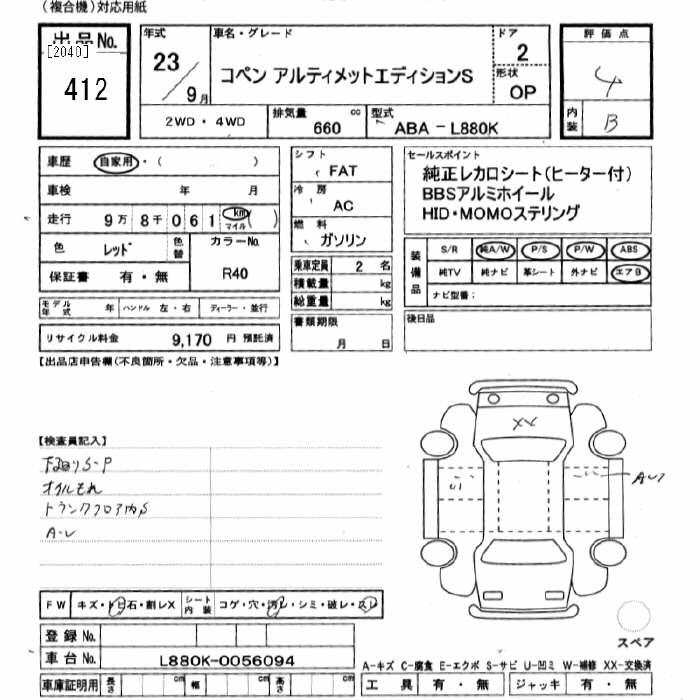 (複合機)対応用紙
出品No.
[2040]
412
年式
23
9月
車名・グレード
コペン アルティメットエディションS
ドア
2
形状
OP
評価点
4
内装
B
2WD・4WD
排気量
660
cc
型式
ABA-L880K
車歴
自家用・( )
車検
年 月
走行
9万 8千 0 6 1 km マイル ( )
色
レッド
色替
カラーNo.
R40
保証書
有・無
モデル年式
年
ハンドル 左・右
ディーラー・並行
リサイクル料金 9,170 円 預託済
シフト
FAT
冷房
AC
燃料
ガソリン
乗車定員 2 名
積載量 kg
総重量 kg
書類期限
月 日
セールスポイント
純正レカロシート(ヒーター付)
BBSアルミホイール
HID・MOMOステリング
装備品
S/R 純A/W P/S P/W ABS
純TV 純ナビ 革シート 外ナビ エアB
ナビ型番:
後日品
【出品店申告欄(不良箇所・欠品・注意事項等)】
【検査員記入】
下廻りS-P
オイルもれ
トランクフロア内S
A-U
XX
FW
キズ・トビ石・割レX
シート内装
コゲ・穴・汚レ・シミ・破レ・スレ
登録No.
車台No.
L880K-0056094
車庫証明用
長さ cm
幅 cm
高さ cm
スペア
A-キズ C-腐食 E-エクボ S-サビ U-凹ミ W-補修 XX-交換済
工具 有・無
ジャッキ 有・無